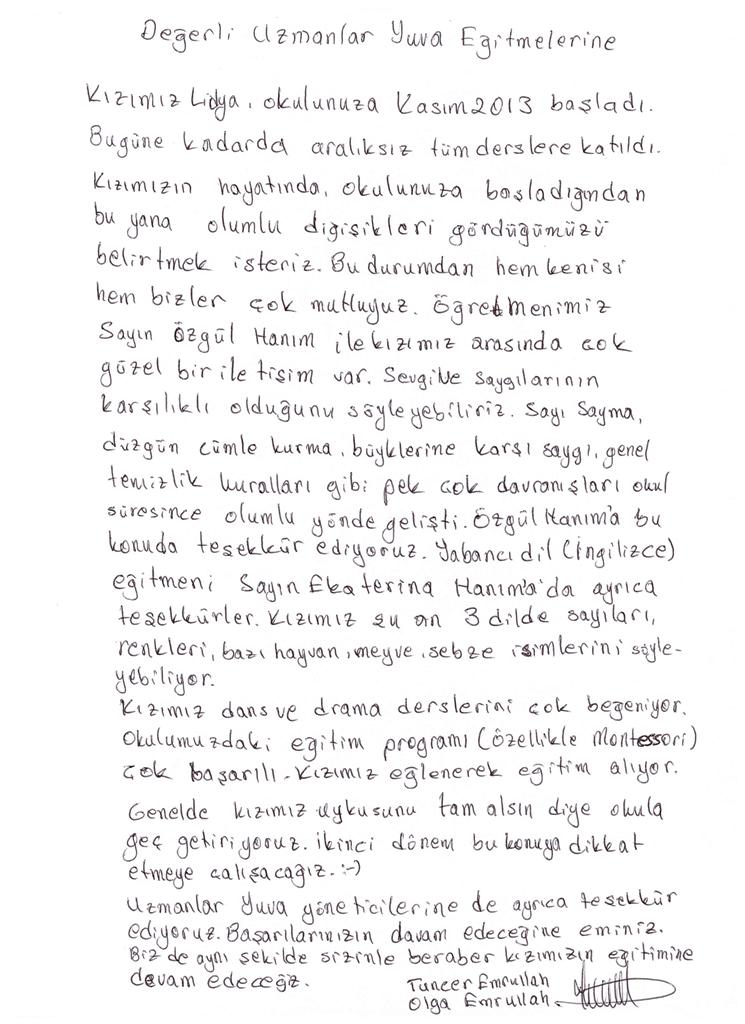 Değerli Uzmanlar Yuva Eğitmelerine
Kızımız Lidya, okulunuza Kasım 2013 başladı.
Bugüne kadarda aralıksız tüm derslere katıldı.
Kızımızın hayatında, okulunuza başladığından
bu yana olumlu digişikleri gördüğümüzü
belirtmek isteriz. Bu durumdan hem kenisi
hem bizler çok mutluyuz. Öğretmenimiz
Sayın Özgül Hanım ile kızımız arasında çok
güzel bir iletişim var. Sevgi Ve saygılarının
karşılıklı olduğunu söyleyebiliriz. Sayı Sayma,
düzgün cümle kurma, büyklerine karşı saygı, genel
temizlik kuralları gibi pek çok davranışları okul
süresince olumlu yönde gelişti. Özgül Hanım'a bu
konuda teşekkür ediyoruz. Yabancı dil (ingilizce)
eğitmeni Sayın Ekaterina Hanım'a'da ayrıca
teşekkürler. Kızımız şu an 3 dilde sayıları,
renkleri, bazı hayvan, meyve, sebze isimlerini söyle-
yebiliyor.
Kızımız dans ve drama derslerini çok beğeniyor.
Okulumuzdaki eğitim programı (özellikle Montessori)
çok başarılı. Kızımız eğlenerek eğitim alıyor.
Genelde kızımız uykusunu tam alsın diye okula
geç getiriyoruz. ikinci dönem bu konuya dikkat
etmeye çalışacağız. :-)
Uzmanlar Yuva yöneticilerine de ayrıca teşekkür
ediyoruz. Başarılarınızın davam edeceğine eminiz.
Biz de aynı şekilde sizinle beraber kızımızın eğitimine
davam edeceğiz.
Tuncer Emrullah
Olga Emrullah